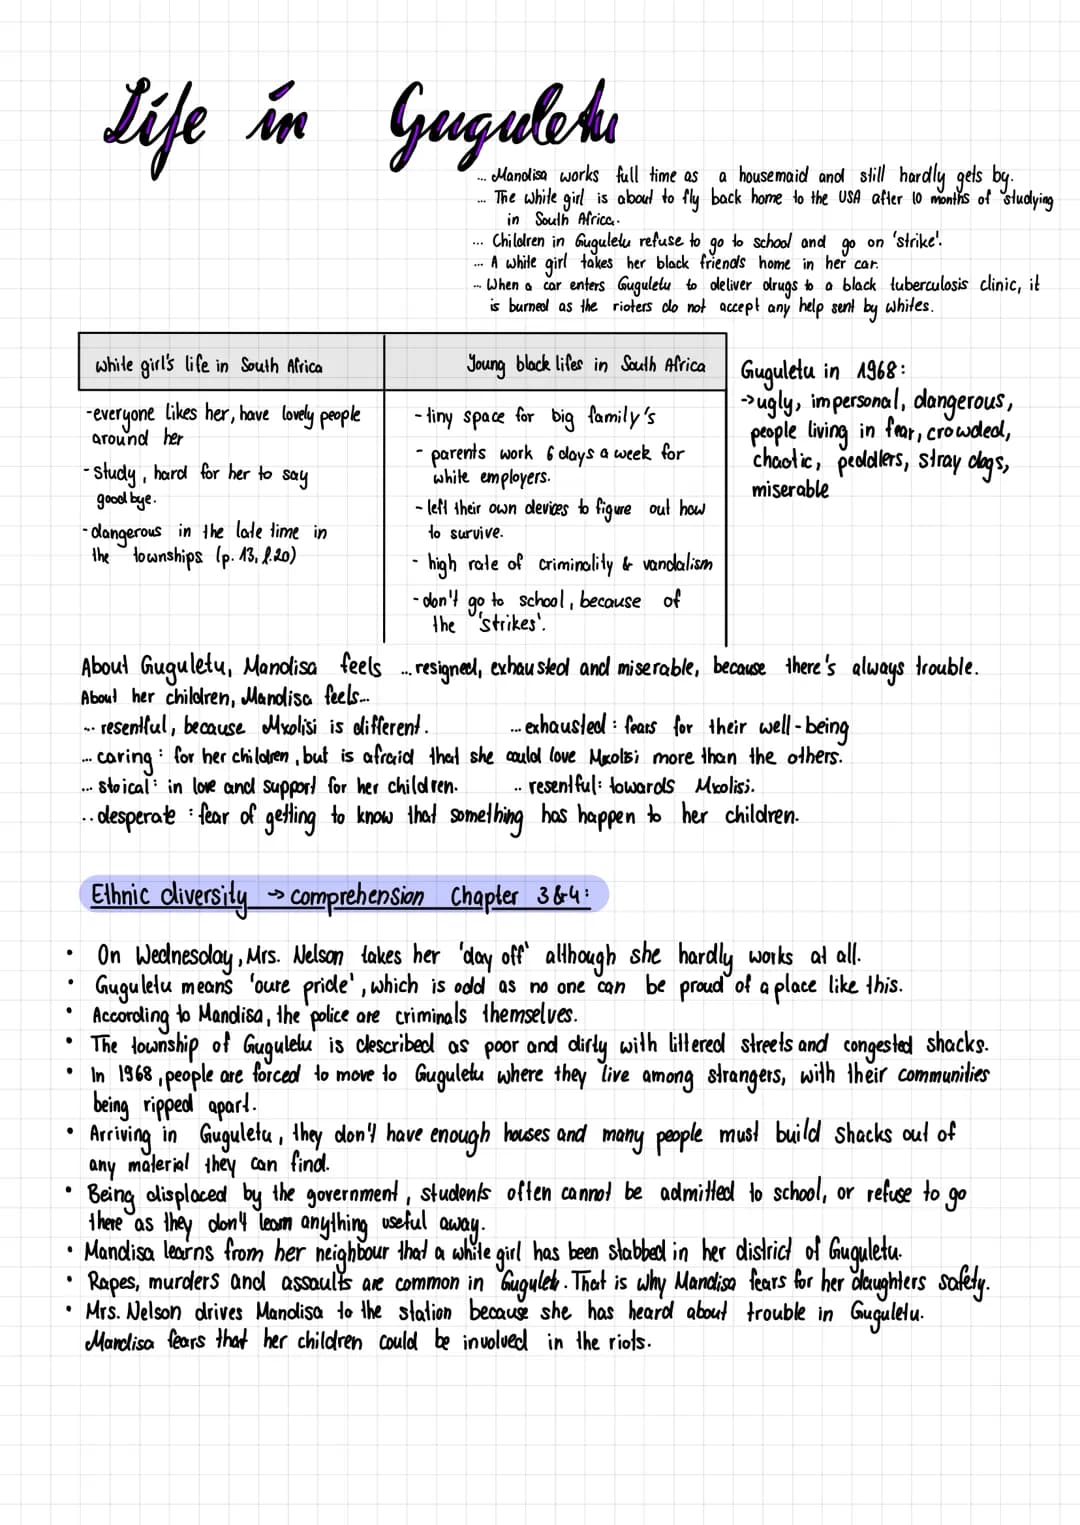 Life in Guguletu
... Mandisa works full time as a housemaid and still hardly gets by.
... The white girl is about to fly back home to the USA after 10 months of studying
in South Africa.
... Children in Guguletu refuse to go to school and go on 'strike'.
... A white girl takes her black friends home in her car.
... When a car enters Guguletu to deliver drugs to a black tuberculosis clinic, it
is burned as the rioters do not accept any help sent by whites.
white girl's life in South Africa
-everyone likes her, have lovely people
around her
- study, hard for her to say
good bye.
- dangerous in the late time in
the townships (p. 13, l.20)
Young black lifes in South Africa
- tiny space for big family's
- parents work 6 days a week for
white employers.
- left their own devices to figure out how
to survive.
- high rate of criminality & vandalism
- don't go to school, because of
the 'strikes'.
Guguletu in 1968:
-> ugly, impersonal, dangerous,
people living in fear, crowded,
chaotic, peddlers, stray dogs,
miserable
About Guguletu, Mandisa feels ... resigned, exhausted and miserable, because there's always trouble.
About her children, Mandisa feels...
... resentful, because Mxolisi is different. ... exhausted: fears for their well-being
... caring: for her children, but is afraid that she could love Mxolisi more than the others.
... stoical: in love and support for her children. .. resentful: towards Mxolisi.
.. desperate: fear of getting to know that something has happen to her children.
Ethnic diversity -> comprehension Chapter 3 & 4:
• On Wednesday, Mrs. Nelson takes her 'day off' although she hardly works at all.
• Guguletu means 'oure pride', which is odd as no one can be proud of a place like this.
• According to Mandisa, the police are criminals themselves.
• The township of Guguletu is described as poor and dirty with littered streets and congested shacks.
• In 1968, people are forced to move to Guguletu where they live among strangers, with their communities
being ripped apart.
• Arriving in Guguletu, they don't have enough houses and many people must build shacks out of
any material they can find.
• Being displaced by the government, students often cannot be admitted to school, or refuse to go
there as they don't learn anything useful away.
• Mandisa learns from her neighbour that a white girl has been stabbed in her district of Guguletu.
• Rapes, murders and assaults are common in Guguletu. That is why Mandisa fears for her daughters safety.
• Mrs. Nelson drives Mandisa to the station because she has heard about trouble in Guguletu.
Mandisa fears that her children could be involved in the riots.